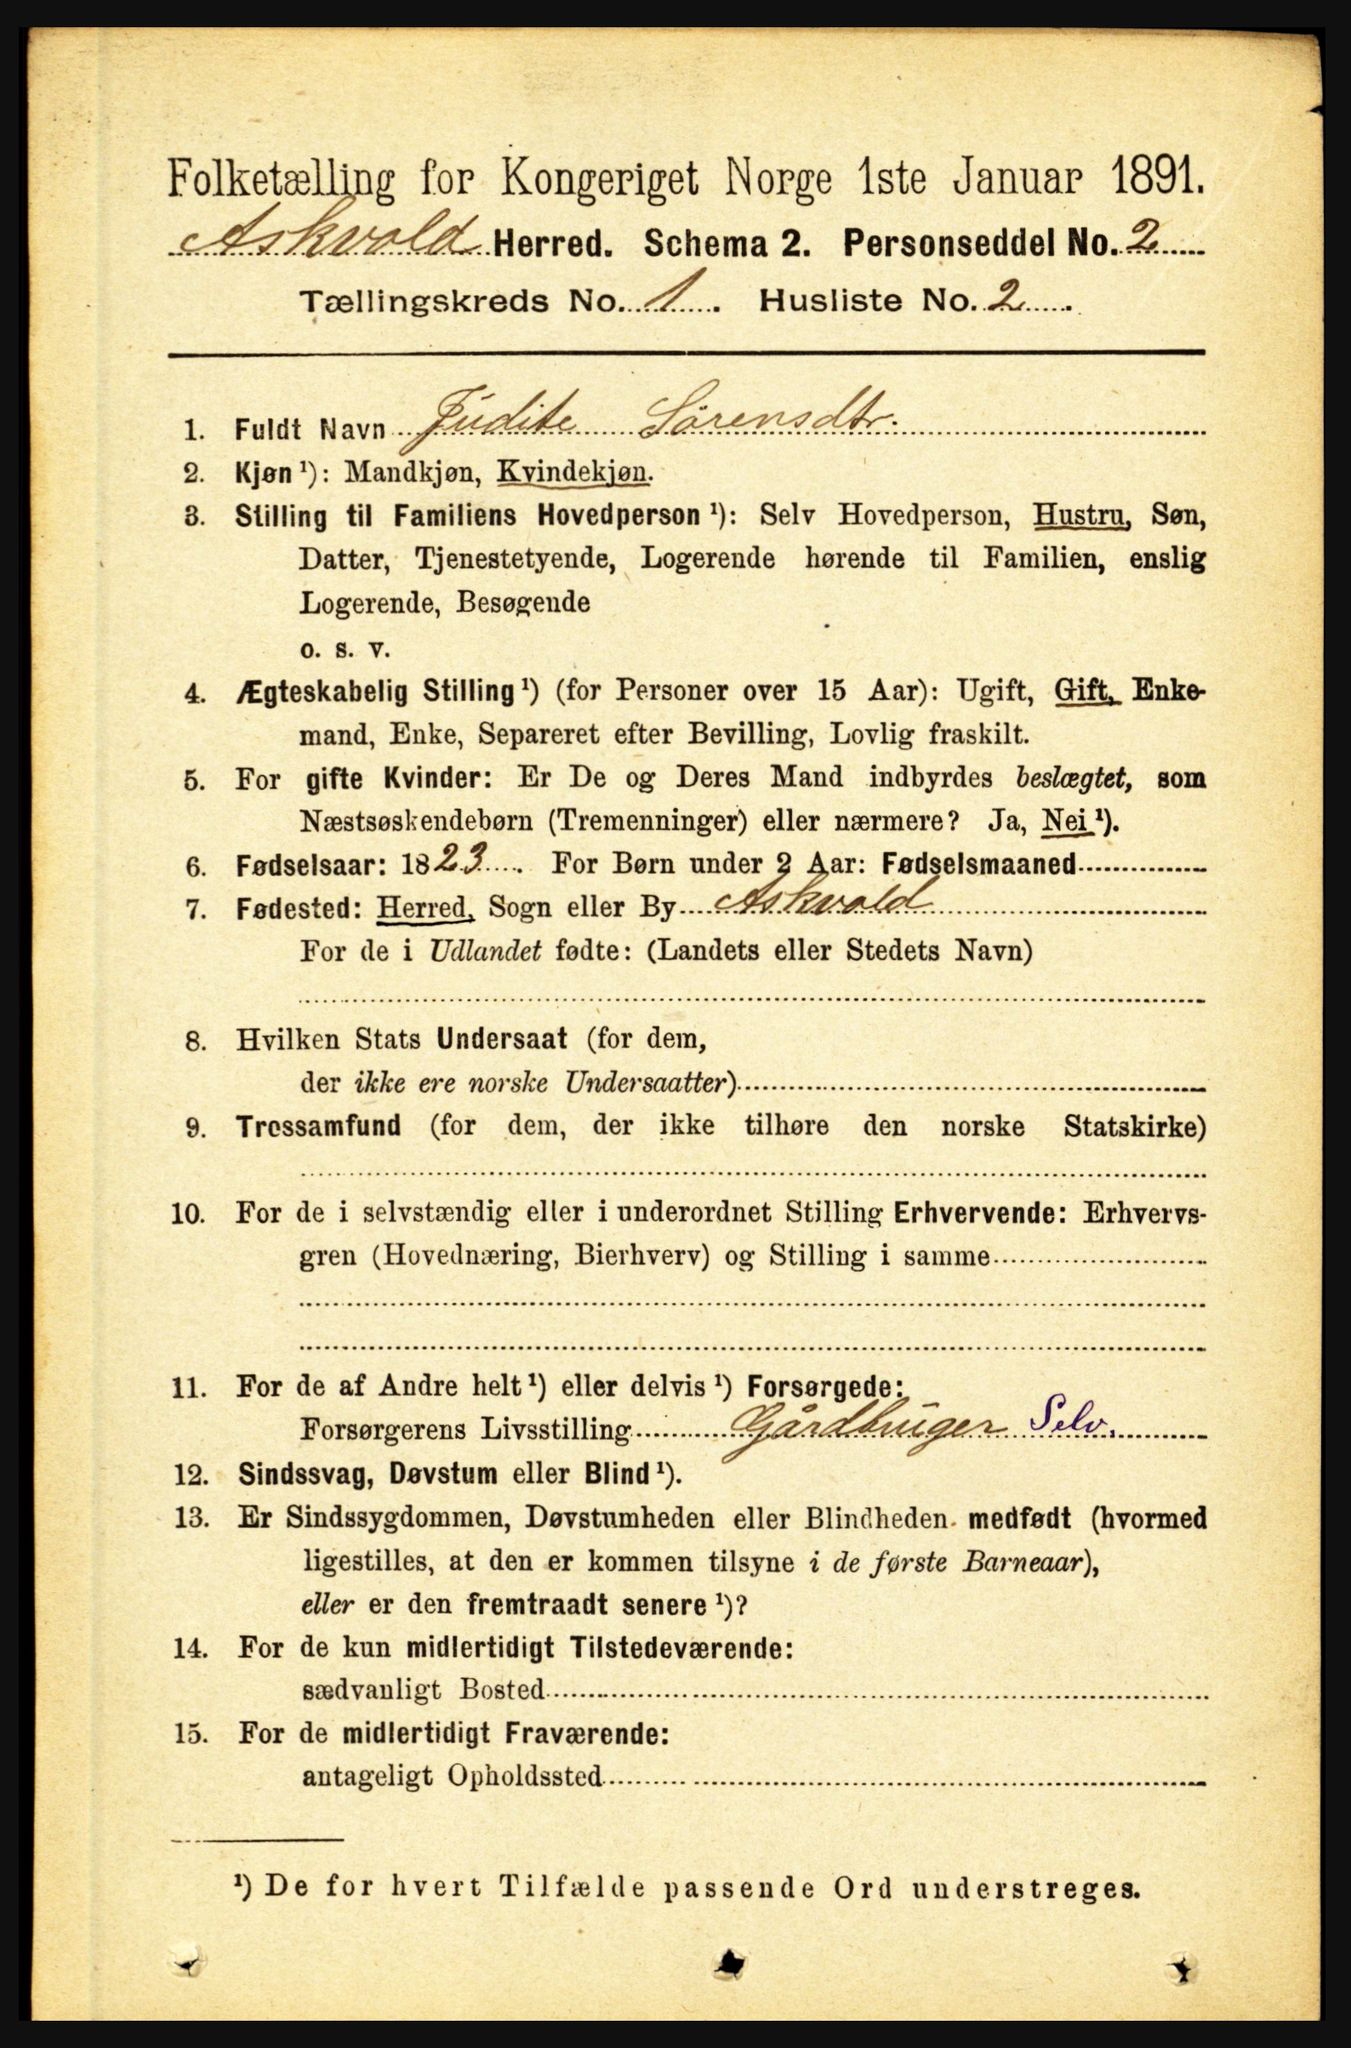 Folketælling for Kongeriget Norge 1ste Januar 1891.
Askvold Herred. Schema 2. Personseddel No. 2
Tællingskreds No. 1. Husliste No. 2.
1. Fuldt Navn Judite Sörensdtr.
2. Kjøn ¹): Mandkjøn, Kvindekjøn.
3. Stilling til Familiens Hovedperson ¹): Selv Hovedperson, Hustru, Søn,
Datter, Tjenestetyende, Logerende hørende til Familien, enslig
Logerende, Besøgende
o. s. v.
4. Ægteskabelig Stilling ¹) (for Personer over 15 Aar): Ugift, Gift, Enke-
mand, Enke, Separeret efter Bevilling, Lovlig fraskilt.
5. For gifte Kvinder: Er De og Deres Mand indbyrdes beslægtet, som
Næstsøskendebørn (Tremenninger) eller nærmere? Ja, Nei ¹).
6. Fødselsaar: 1823. For Børn under 2 Aar: Fødselsmaaned
7. Fødested: Herred, Sogn eller By Askvold
For de i Udlandet fødte: (Landets eller Stedets Navn)
8. Hvilken Stats Undersaat (for dem,
der ikke ere norske Undersaatter)
9. Trossamfund (for dem, der ikke tilhøre den norske Statskirke)
10. For de i selvstændig eller i underordnet Stilling Erhvervende: Erhvervs-
gren (Hovednæring, Bierhverv) og Stilling i samme
11. For de af Andre helt ¹) eller delvis ¹) Forsørgede:
Forsørgerens Livsstilling Gårdbruger Selv.
12. Sindssvag, Døvstum eller Blind ¹).
13. Er Sindssygdommen, Døvstumheden eller Blindheden medfødt (hvormed
ligestilles, at den er kommen tilsyne i de første Barneaar),
eller er den fremtraadt senere ¹)?
14. For de kun midlertidigt Tilstedeværende:
sædvanligt Bosted
15. For de midlertidigt Fraværende:
antageligt Opholdssted
¹) De for hvert Tilfælde passende Ord understreges.